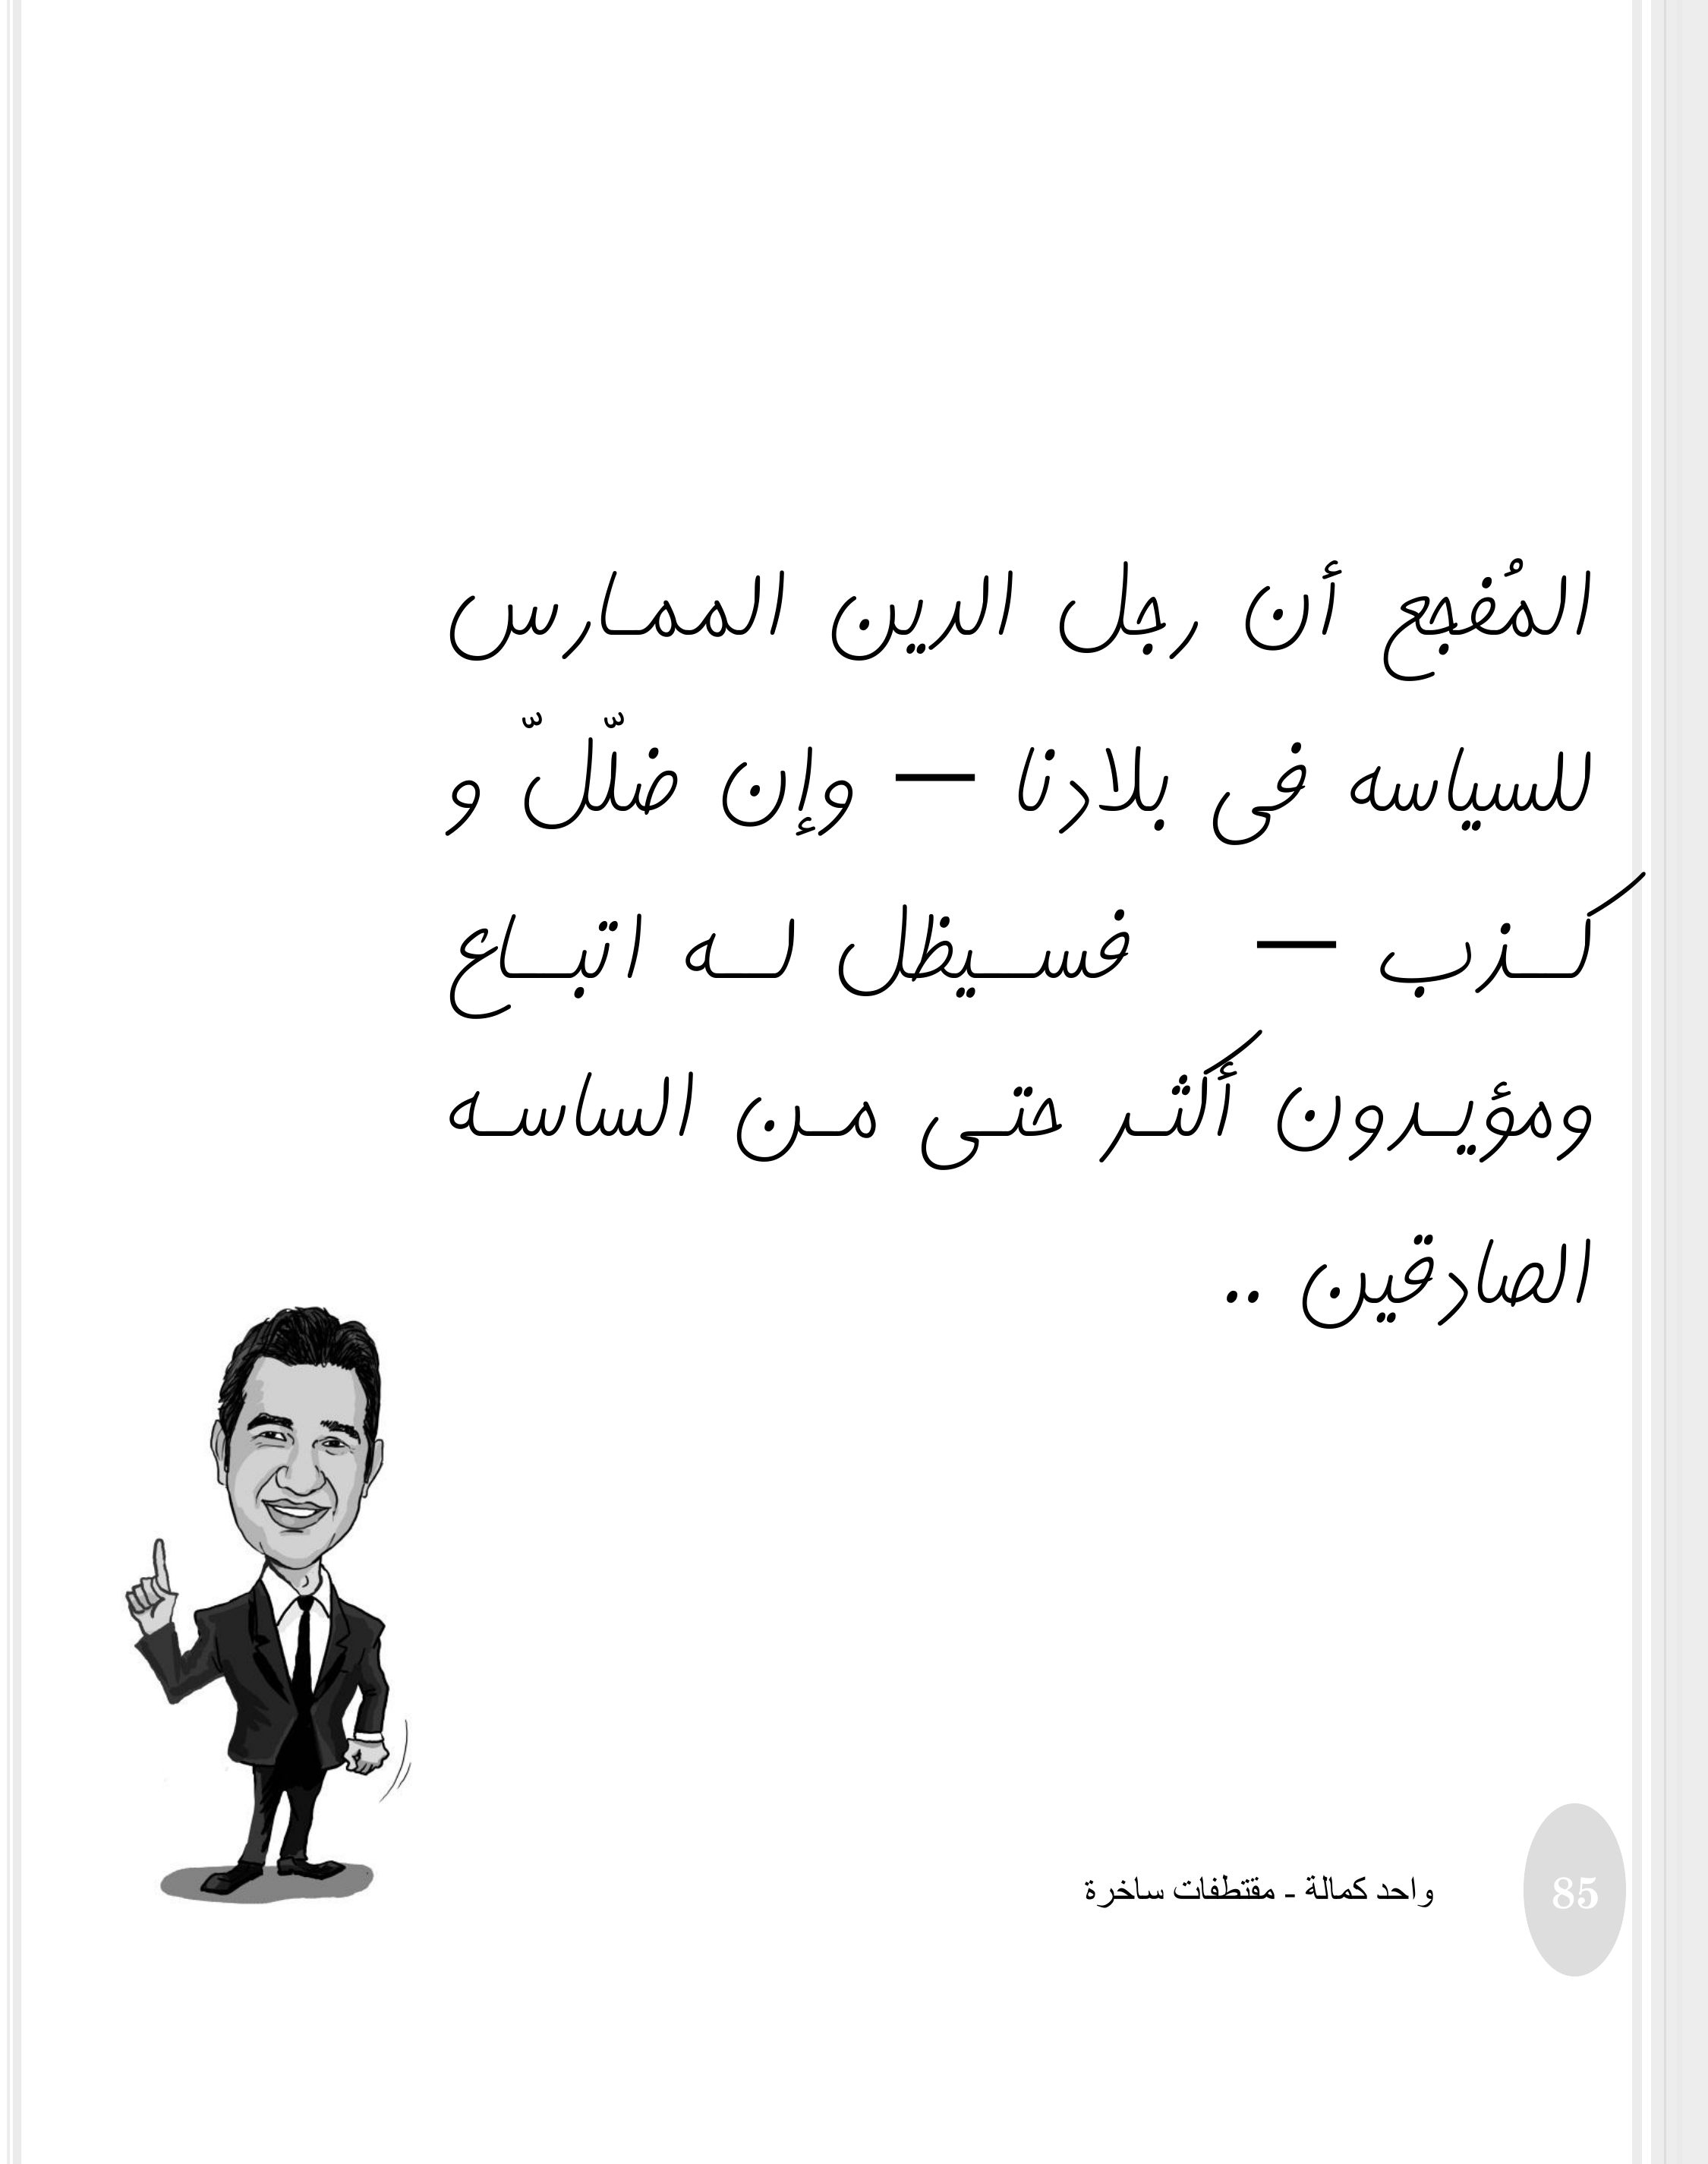 المُفجع أن رجل الدين الممارس
للسياسه فى بلادنا – وإن ضلّلّ و
كذب – فسيظل له اتباع
ومؤيدون أكثر حتى من الساسه
الصادقين ..
واحد كمالة - مقتطفات ساخرة
85